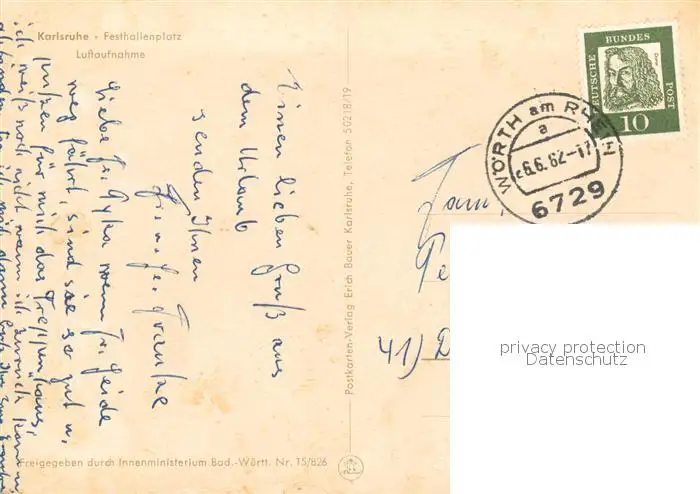 Karlsruhe - Festhallenplatz
Luftaufnahme
Einen lieben Gruß aus
dem Urlaub
senden Ihnen
Liebe Fr. wenn Fr. Heide
weg fährt, sind sie so gut u.
putzen für mich das Treppenhaus,
ich weiß noch nicht wann ich zurück komme
Freigegeben durch Innenministerium Bad.-Württ. Nr. 15/826
Postkarten-Verlag Erich Bauer Karlsruhe, Telefon 50218/19
Fam.
41) D
DEUTSCHE BUNDES POST
Dürer
10
WÖRTH am RHEIN
a
6.6.62-17
6729
privacy protection
Datenschutz